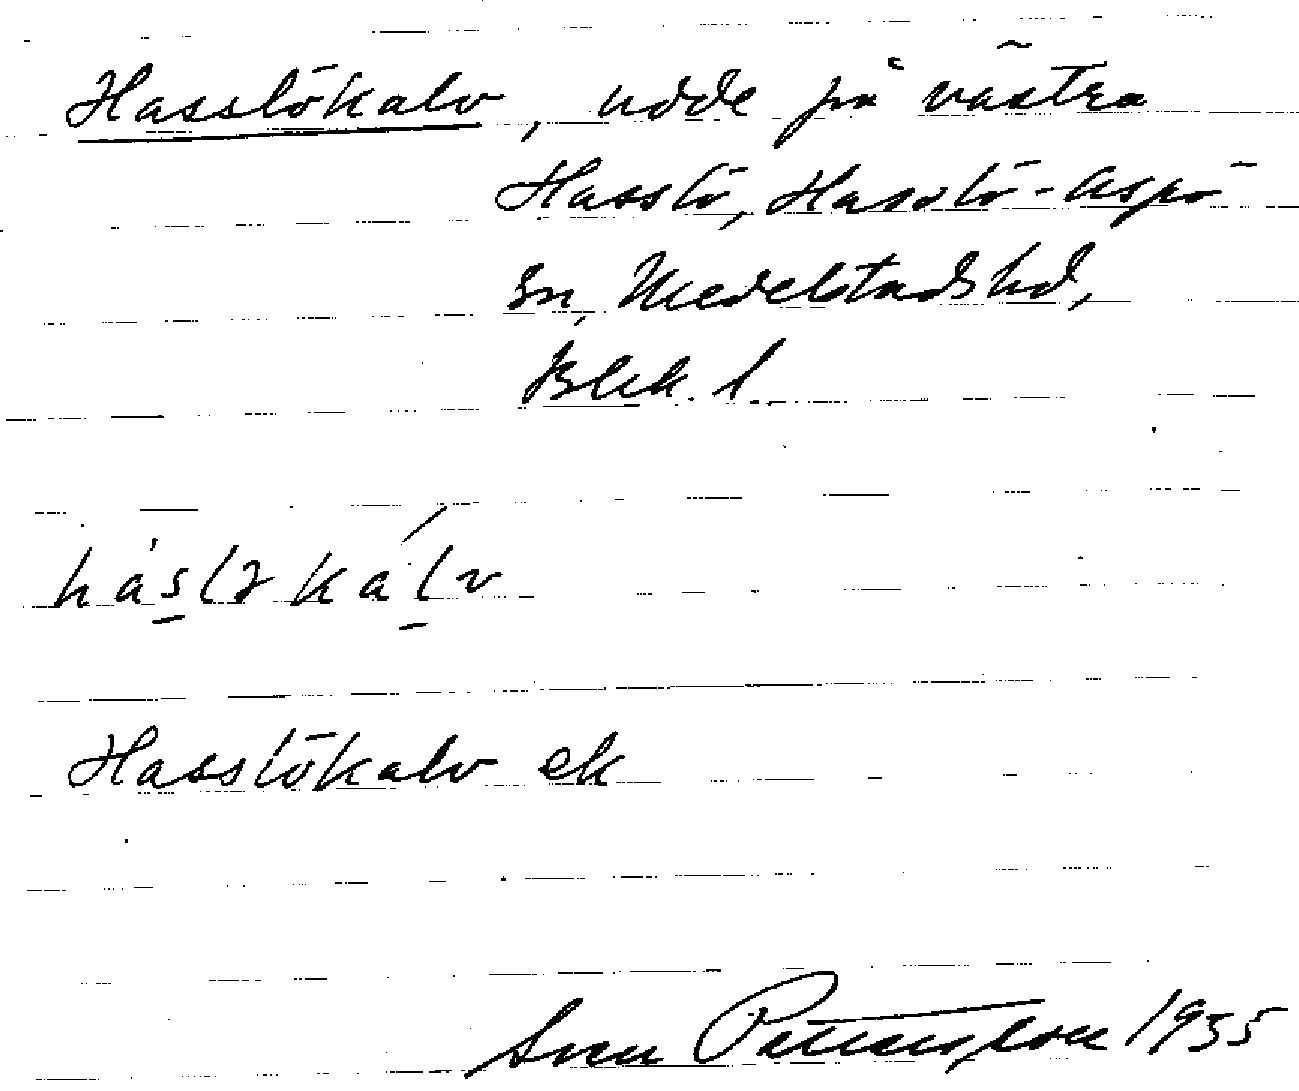 Hasslökalv, udde på västra
Hasslö, Hasslö-Aspö
sn, Medelstads hd,
Blek. l.
Hasslökalv ek
Sven 1935